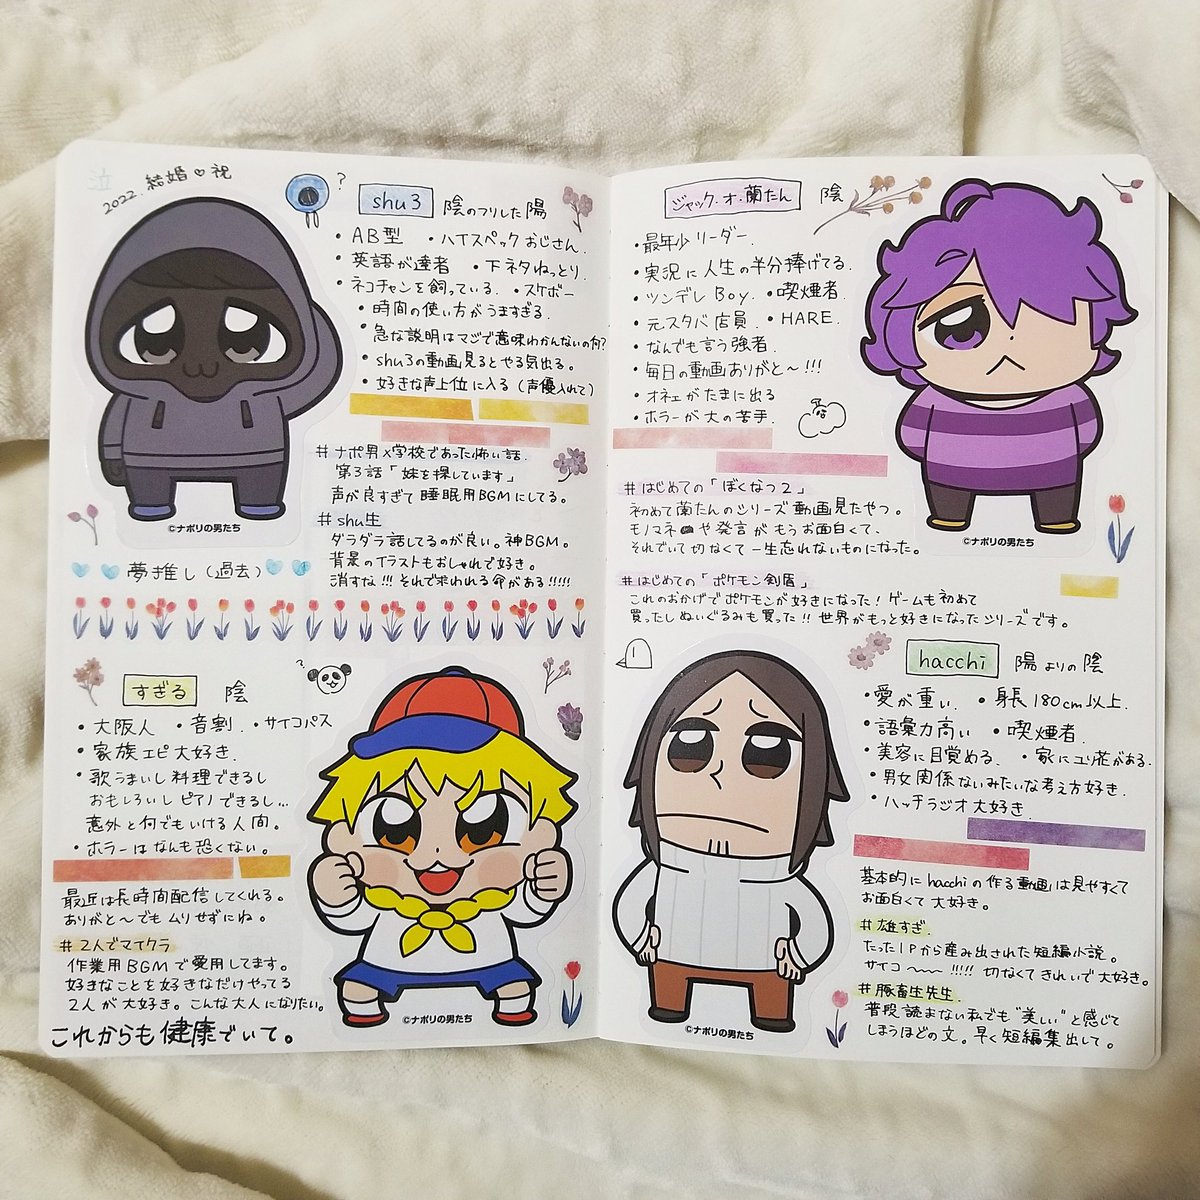 泣
2022. 結婚♡祝
?
shu3 陰のフリした陽
・AB型 ・ハイスペックおじさん.
・英語が達者 ・下ネタねっとり.
・ネコチャンを飼っている. ・スケボー
・時間の使い方がうますぎる.
・急な説明はマジで意味わかんないの何?
・shu3の動画見るとやる気出る。
・好きな声上位に入る(声優入れて)
#ナポ男×学校であった怖い話.
第3話「妹を探しています」
声が良すぎて睡眠用BGMにしてる。
#shu生
ダラダラ話してるのが良い。神BGM。
背景のイラストもおしゃれで好き。
消すな!!! それで救われる命がある!!!!!
©ナポリの男たち
夢推し(過去)
すぎる 陰
?
・大阪人 ・音割 ・サイコパス
・家族エピ大好き.
・歌うまいし料理できるし
おもしろいしピアノできるし...
意外と何でもいける人間。
・ホラーはなんも恐くない。
最近は長時間配信してくれる。
ありがと〜でもムリせずにね。
#2人でマイクラ
作業用BGMで愛用してます。
好きなことを好きなだけやってる
2人が大好き。こんな大人になりたい。
これからも健康でいて。
©ナポリの男たち
ジャック・オ・蘭たん 陰
・最年少リーダー.
・実況に人生の半分捧げてる.
・ツンデレBoy. ・喫煙者.
・元スタバ店員. ・HARE.
・なんでも言う強者.
・毎日の動画ありがと〜!!!
・オネェがたまに出る
・ホラーが大の苦手
©ナポリの男たち
#はじめての「ぼくなつ2」
初めて蘭たんのシリーズ動画見たやつ。
モノマネや発言がもうお面白くて、
それでいて切なくて一生忘れないものになった。
#はじめての「ポケモン剣盾」
これのおかげでポケモンが好きになった!ゲームも初めて
買ったしぬいぐるみも買った!! 世界がもっと好きになったシリーズです。
hacchi 陽よりの陰
・愛が重い. ・身長180cm以上.
・語彙力高い ・喫煙者.
・美容に目覚める. ・家にユリ花がある.
・男女関係ないみたいな考え方好き.
・ハッチラジオ大好き
基本的にhacchiの作る動画は見やすくて
お面白くて大好き。
#雄すぎ.
たった1Pから産み出された短編小説。
サイコ〜〜!!!!! 切なくてきれいで大好き。
#豚畜生先生.
普段読まない私でも"美しい"と感じて
しまうほどの文。早く短編集出して。
©ナポリの男たち